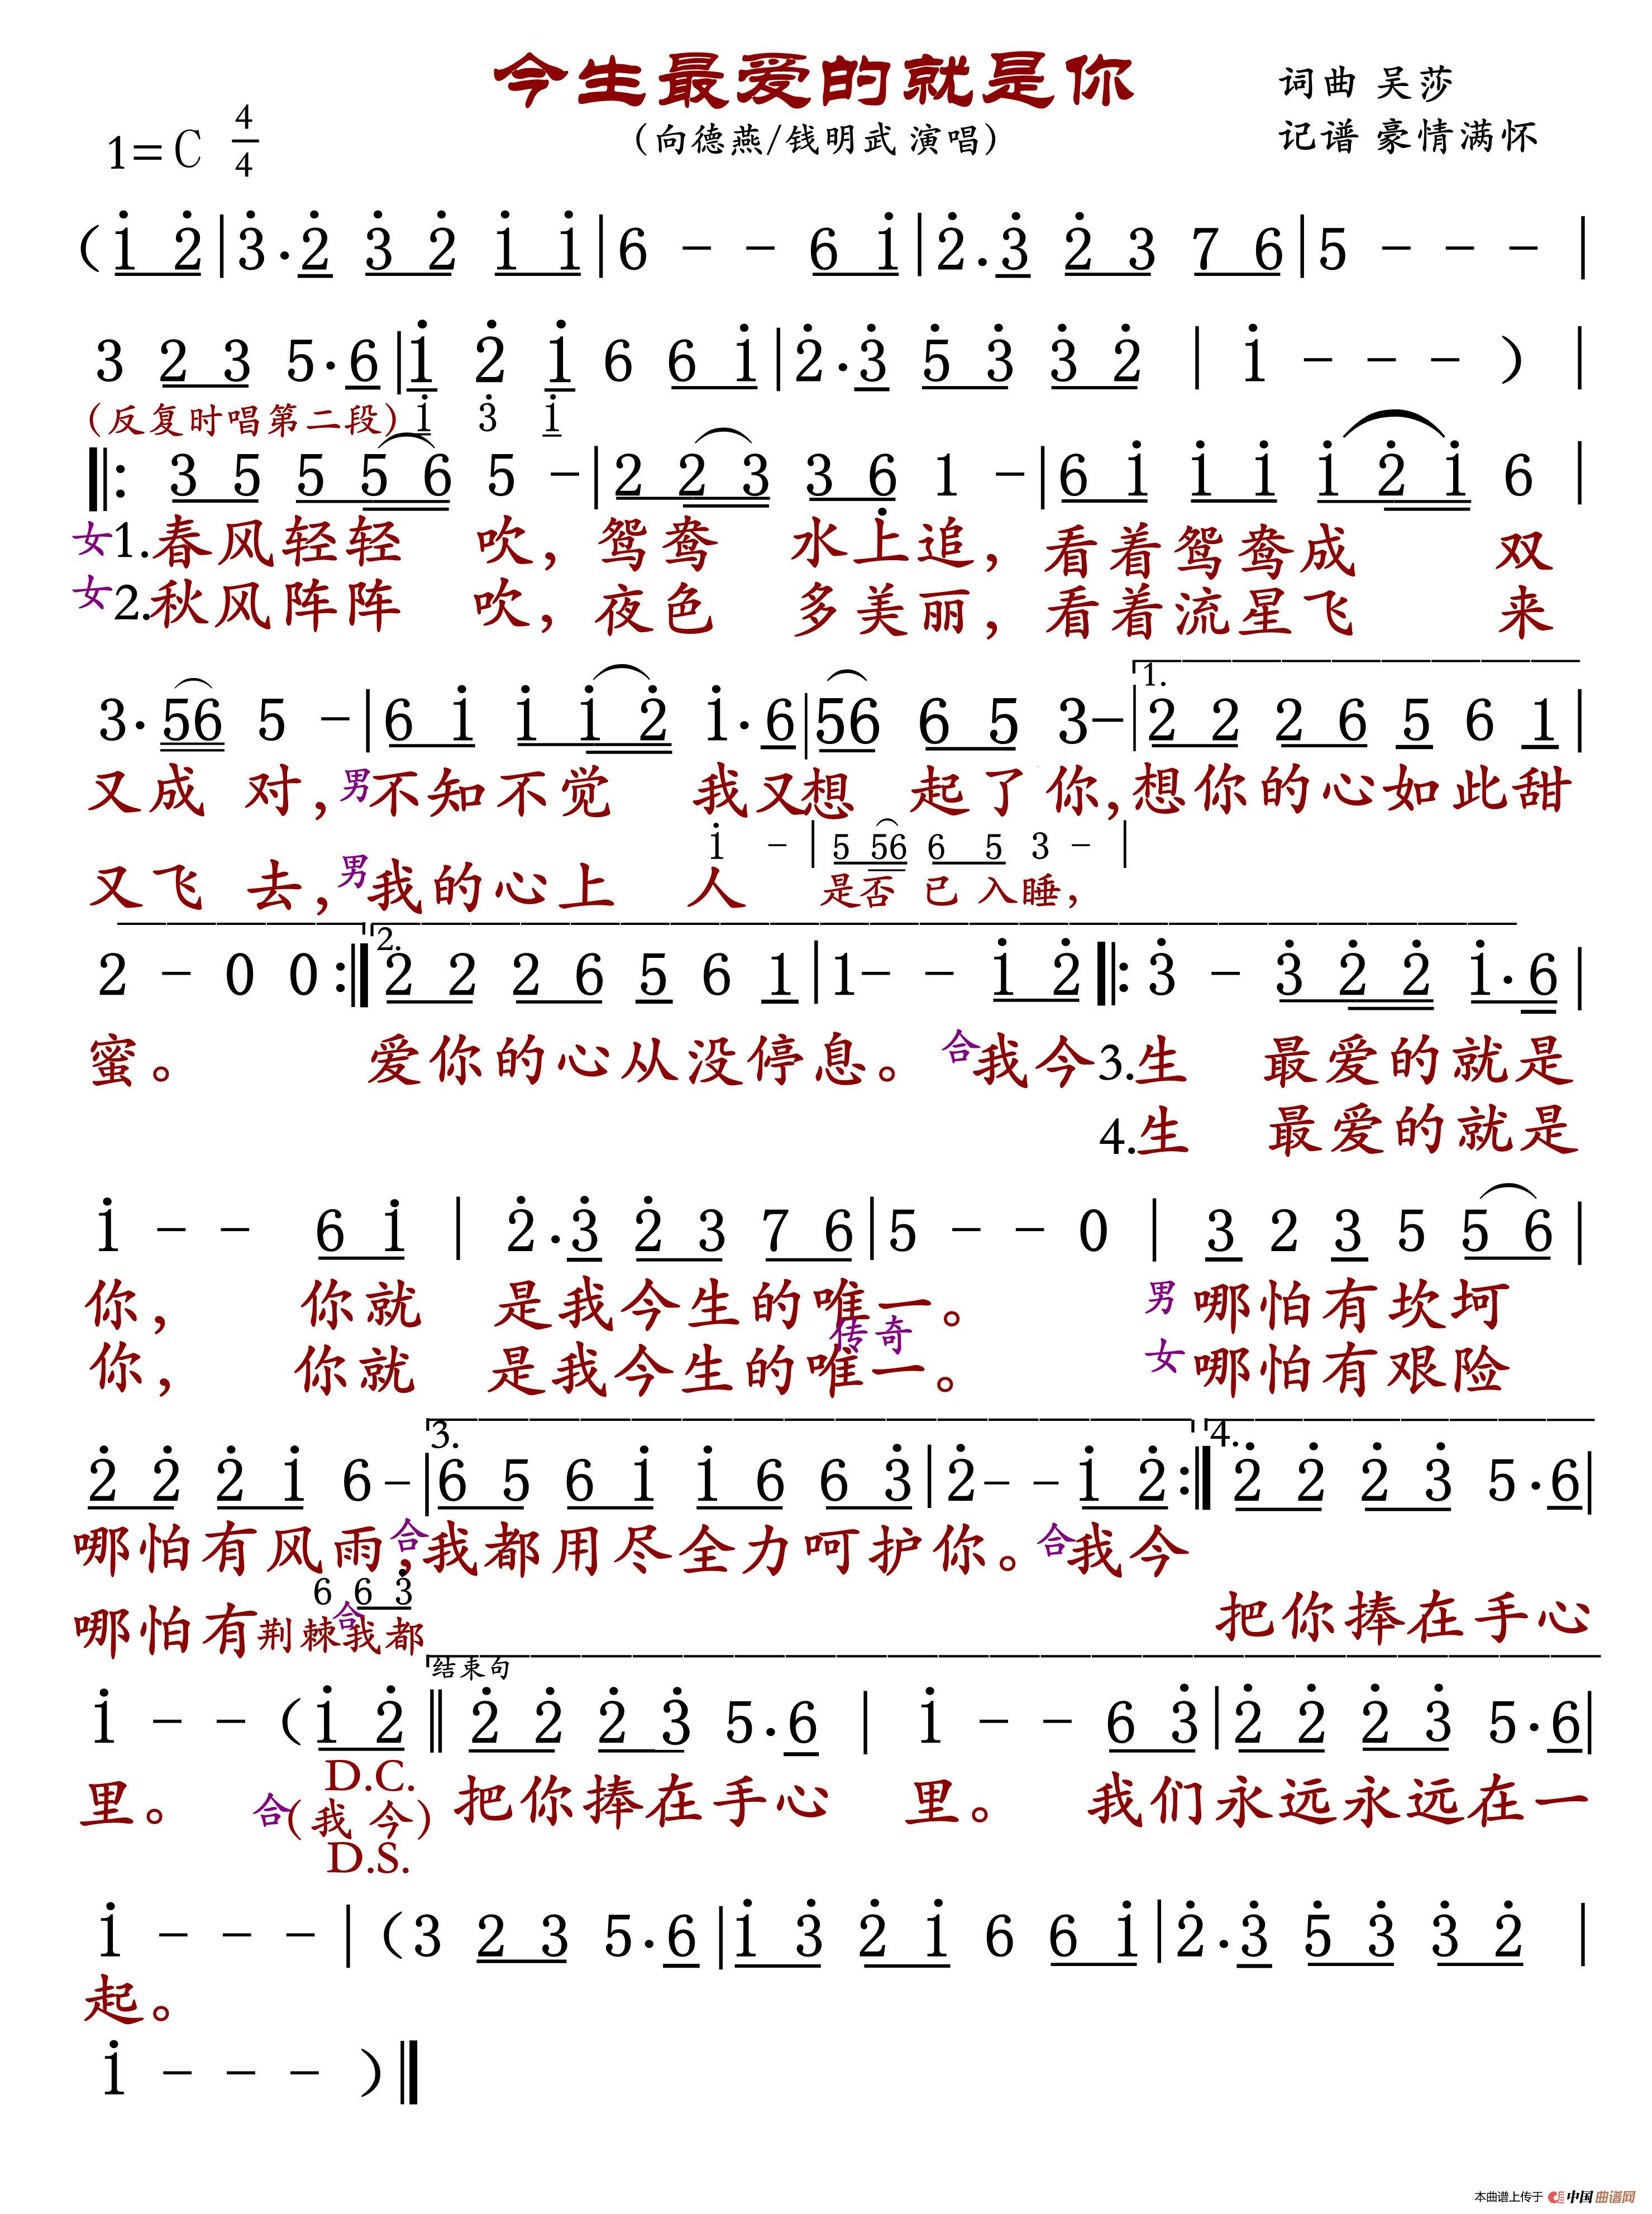 今生最爱的就是你
词曲 吴莎
1=C 4/4
(向德燕/钱明武 演唱)
记谱 豪情满怀
(i̇ 2̇|3̇·2̇ 3̇ 2̇ i̇ i̇|6 - - 6 i̇|2̇·3̇ 2̇ 3 7 6|5 - - -|
3 2 3 5·6|i̇ 2̇ i̇ 6 6 i̇|2̇·3̇ 5̇ 3̇ 3̇ 2̇|i̇ - - -)|
(反复时唱第二段) i̇ 3̇ i̇
‖: 3 5 5 5 6 5 -|2 2 3 3 6̣ 1 -|6 i̇ i̇ i̇ i̇ 2̇ i̇ 6|
女1.春风轻轻 吹，鸳鸯 水上追，看着鸳鸯成 双
女2.秋风阵阵 吹，夜色 多美丽，看着流星飞 来
1.
3·56 5 -|6 i̇ i̇ i̇ 2̇ i̇·6|56 6 5 3-|2 2 2 6 5 6 1|
又成 对，男不知不觉 我又想 起了你，想你的心如此甜
i̇ -|5 56 6 5 3 -|
又飞 去，男我的心上 人 是否 已 入睡，
2.
2 - 0 0:‖2 2 2 6 5 6 1|1- - i̇ 2̇‖:3̇ - 3̇ 2̇ 2̇ i̇·6|
蜜。 爱你的心从没停息。 合我今3.生 最爱的就是
4.生 最爱的就是
i̇ - - 6 i̇|2̇·3̇ 2̇ 3 7 6|5 - - 0|3 2 3 5 5 6|
你， 你就 是我今生的唯一。 男哪怕有坎坷
传奇
你， 你就 是我今生的唯一。 女哪怕有艰险
3. 4.
2̇ 2̇ 2̇ i̇ 6-|6 5 6 i̇ i̇ 6 6 3̇|2̇- - i̇ 2̇:‖2̇ 2̇ 2̇ 3̇ 5·6|
哪怕有风雨，合我都用尽全力呵护你。合我今
6 6 3̇
哪怕有荆棘合我都 把你捧在手心
结束句
i̇ - - (i̇ 2̇‖2̇ 2̇ 2̇ 3̇ 5·6|i̇ - - 6 3̇|2̇ 2̇ 2̇ 3̇ 5·6|
D.C.
里。 合(我 今) 把你捧在手心 里。 我们永远永远在一
D.S.
i̇ - - -|(3 2 3 5·6|i̇ 3̇ 2̇ i̇ 6 6 i̇|2̇·3̇ 5̇ 3̇ 3̇ 2̇|
起。
i̇ - - -)‖
本曲谱上传于 中国曲谱网